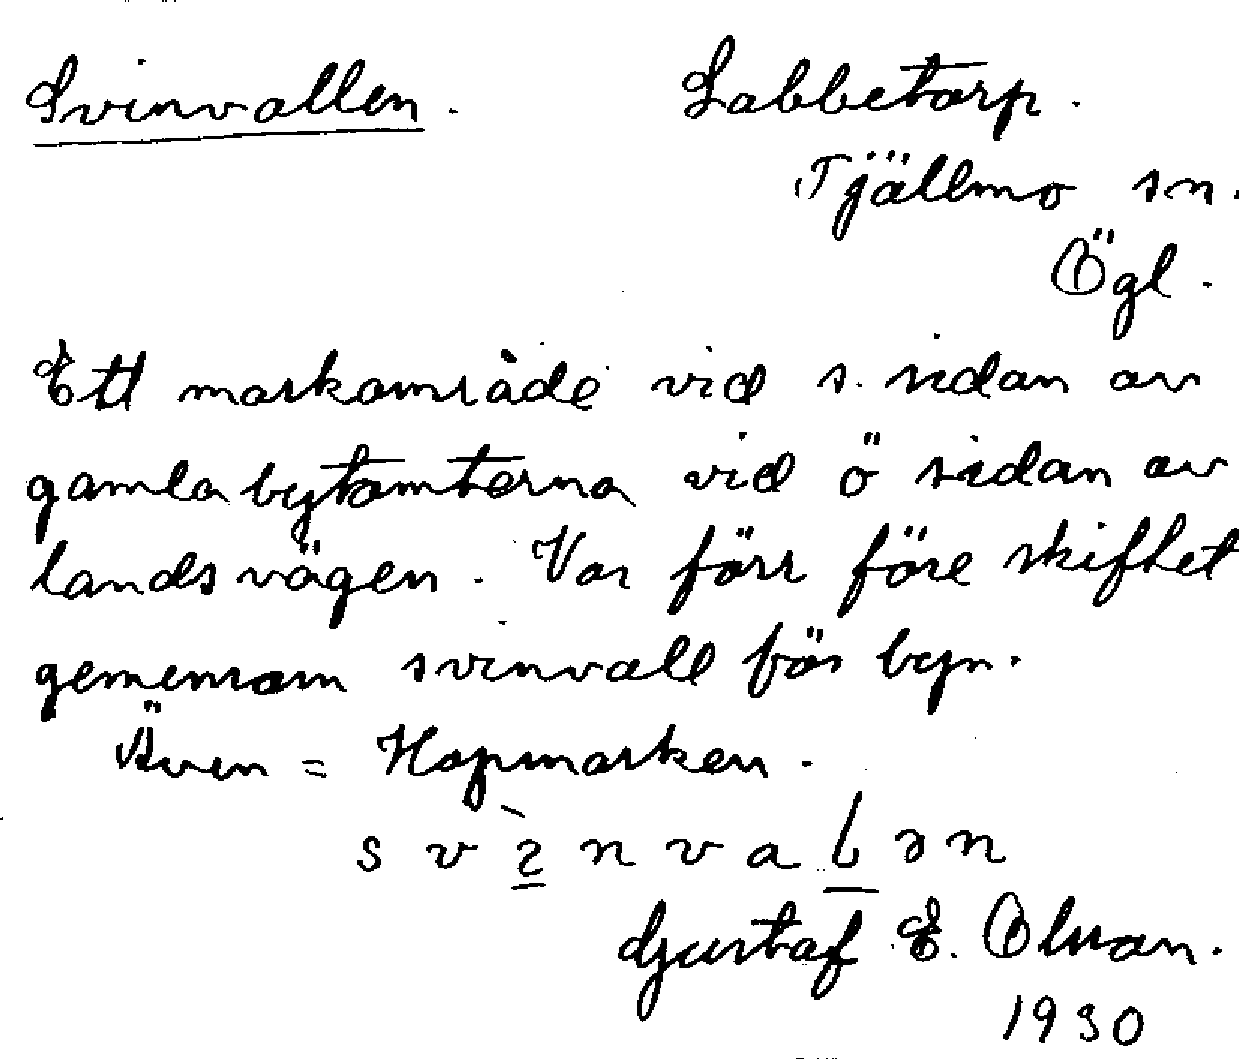 Svinvallen. Labbetorp.
Tjällmo sn.
Ögl.
Ett markområde vid s. sidan av
gamla bytomterna vid ö sidan av
landsvägen. Var förr före skiftet
gemensam svinvall för byn.
Även = Hopmarken.
Gustaf E. Olsson.
1930